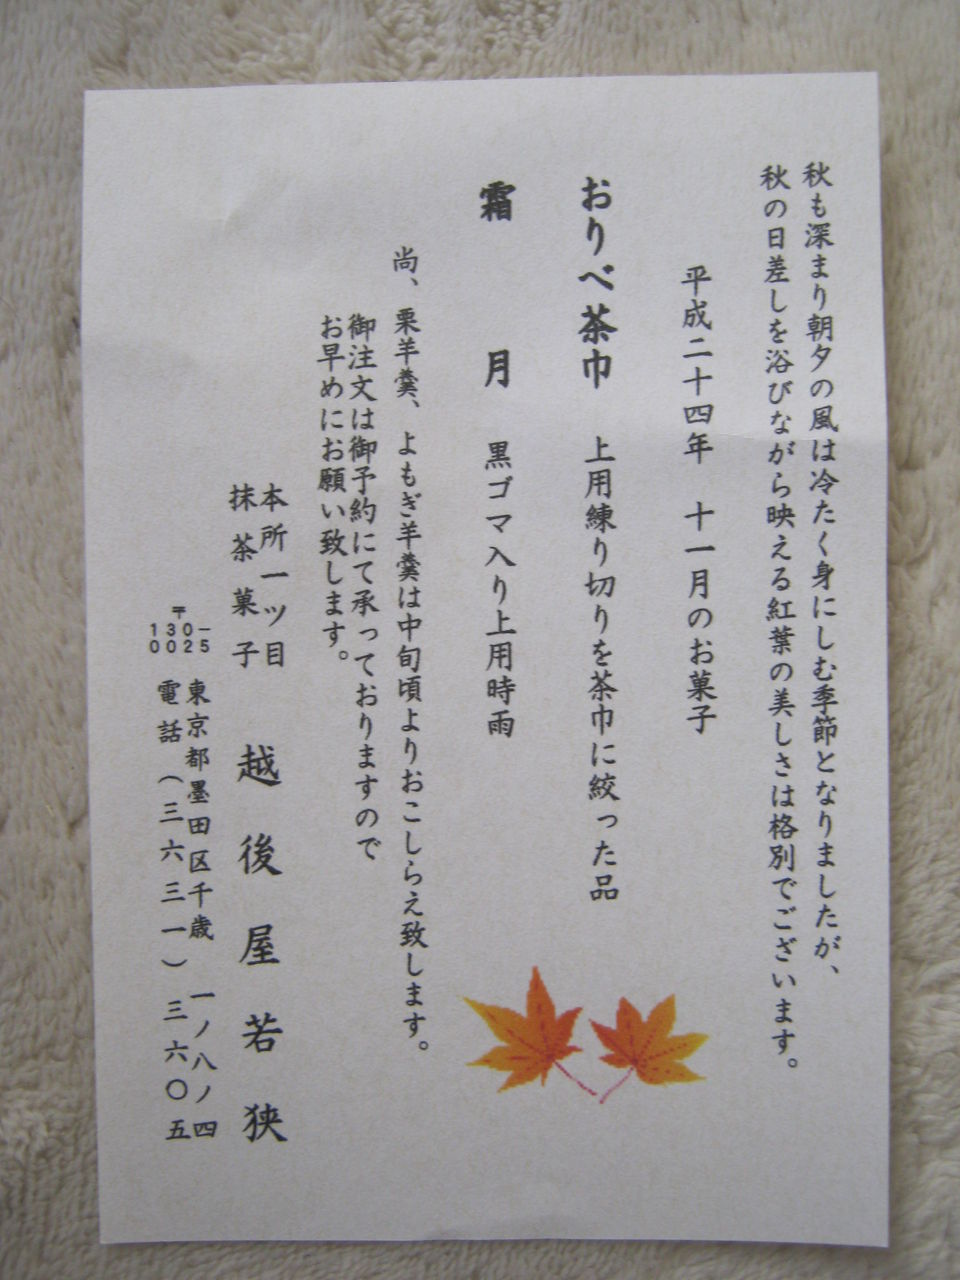 秋も深まり朝夕の風は冷たく身にしむ季節となりましたが、
秋の日差しを浴びながら映える紅葉の美しさは格別でございます。
平成二十四年 十一月のお菓子
おりべ茶巾 上用練り切りを茶巾に絞った品
霜月 黒ゴマ入り上用時雨
尚、栗羊羹、よもぎ羊羹は中旬頃よりおこしらえ致します。
御注文は御予約にて承っておりますので
お早めにお願い致します。
本所一ツ目
抹茶菓子
越後屋若狭
〒130-0025
東京都墨田区千歳 一ノ八ノ四
電話(三六三一)三六〇五